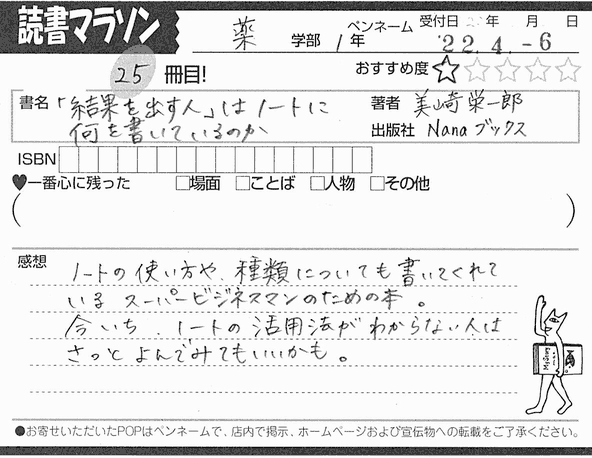 読書マラソン
薬 学部 1年 ペンネーム 受付日 年 月 日
'22.4.-6
25 冊目! おすすめ度 ☆☆☆☆☆
書名 「結果を出す人」はノートに 著者 美崎栄一郎
何を書いているのか 出版社 Nanaブックス
ISBN
♥一番心に残った □場面 □ことば □人物 □その他
( )
感想
ノートの使い方や、種類についても書いてくれて
いるスーパービジネスマンのための本。
今いち、ノートの活用法がわからない人は
さっとよんでみてもいいかも。
●お寄せいただいたPOPはペンネームで、店内で掲示、ホームページおよび宣伝物への転載をご了承ください。